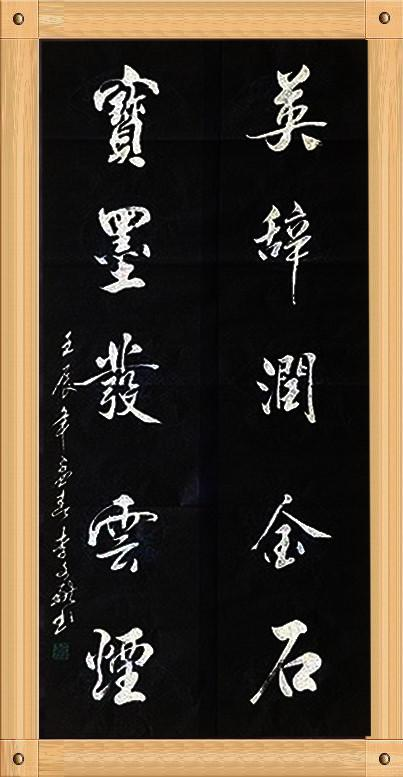 英辞潤金石
寶墨發雲煙
壬辰年